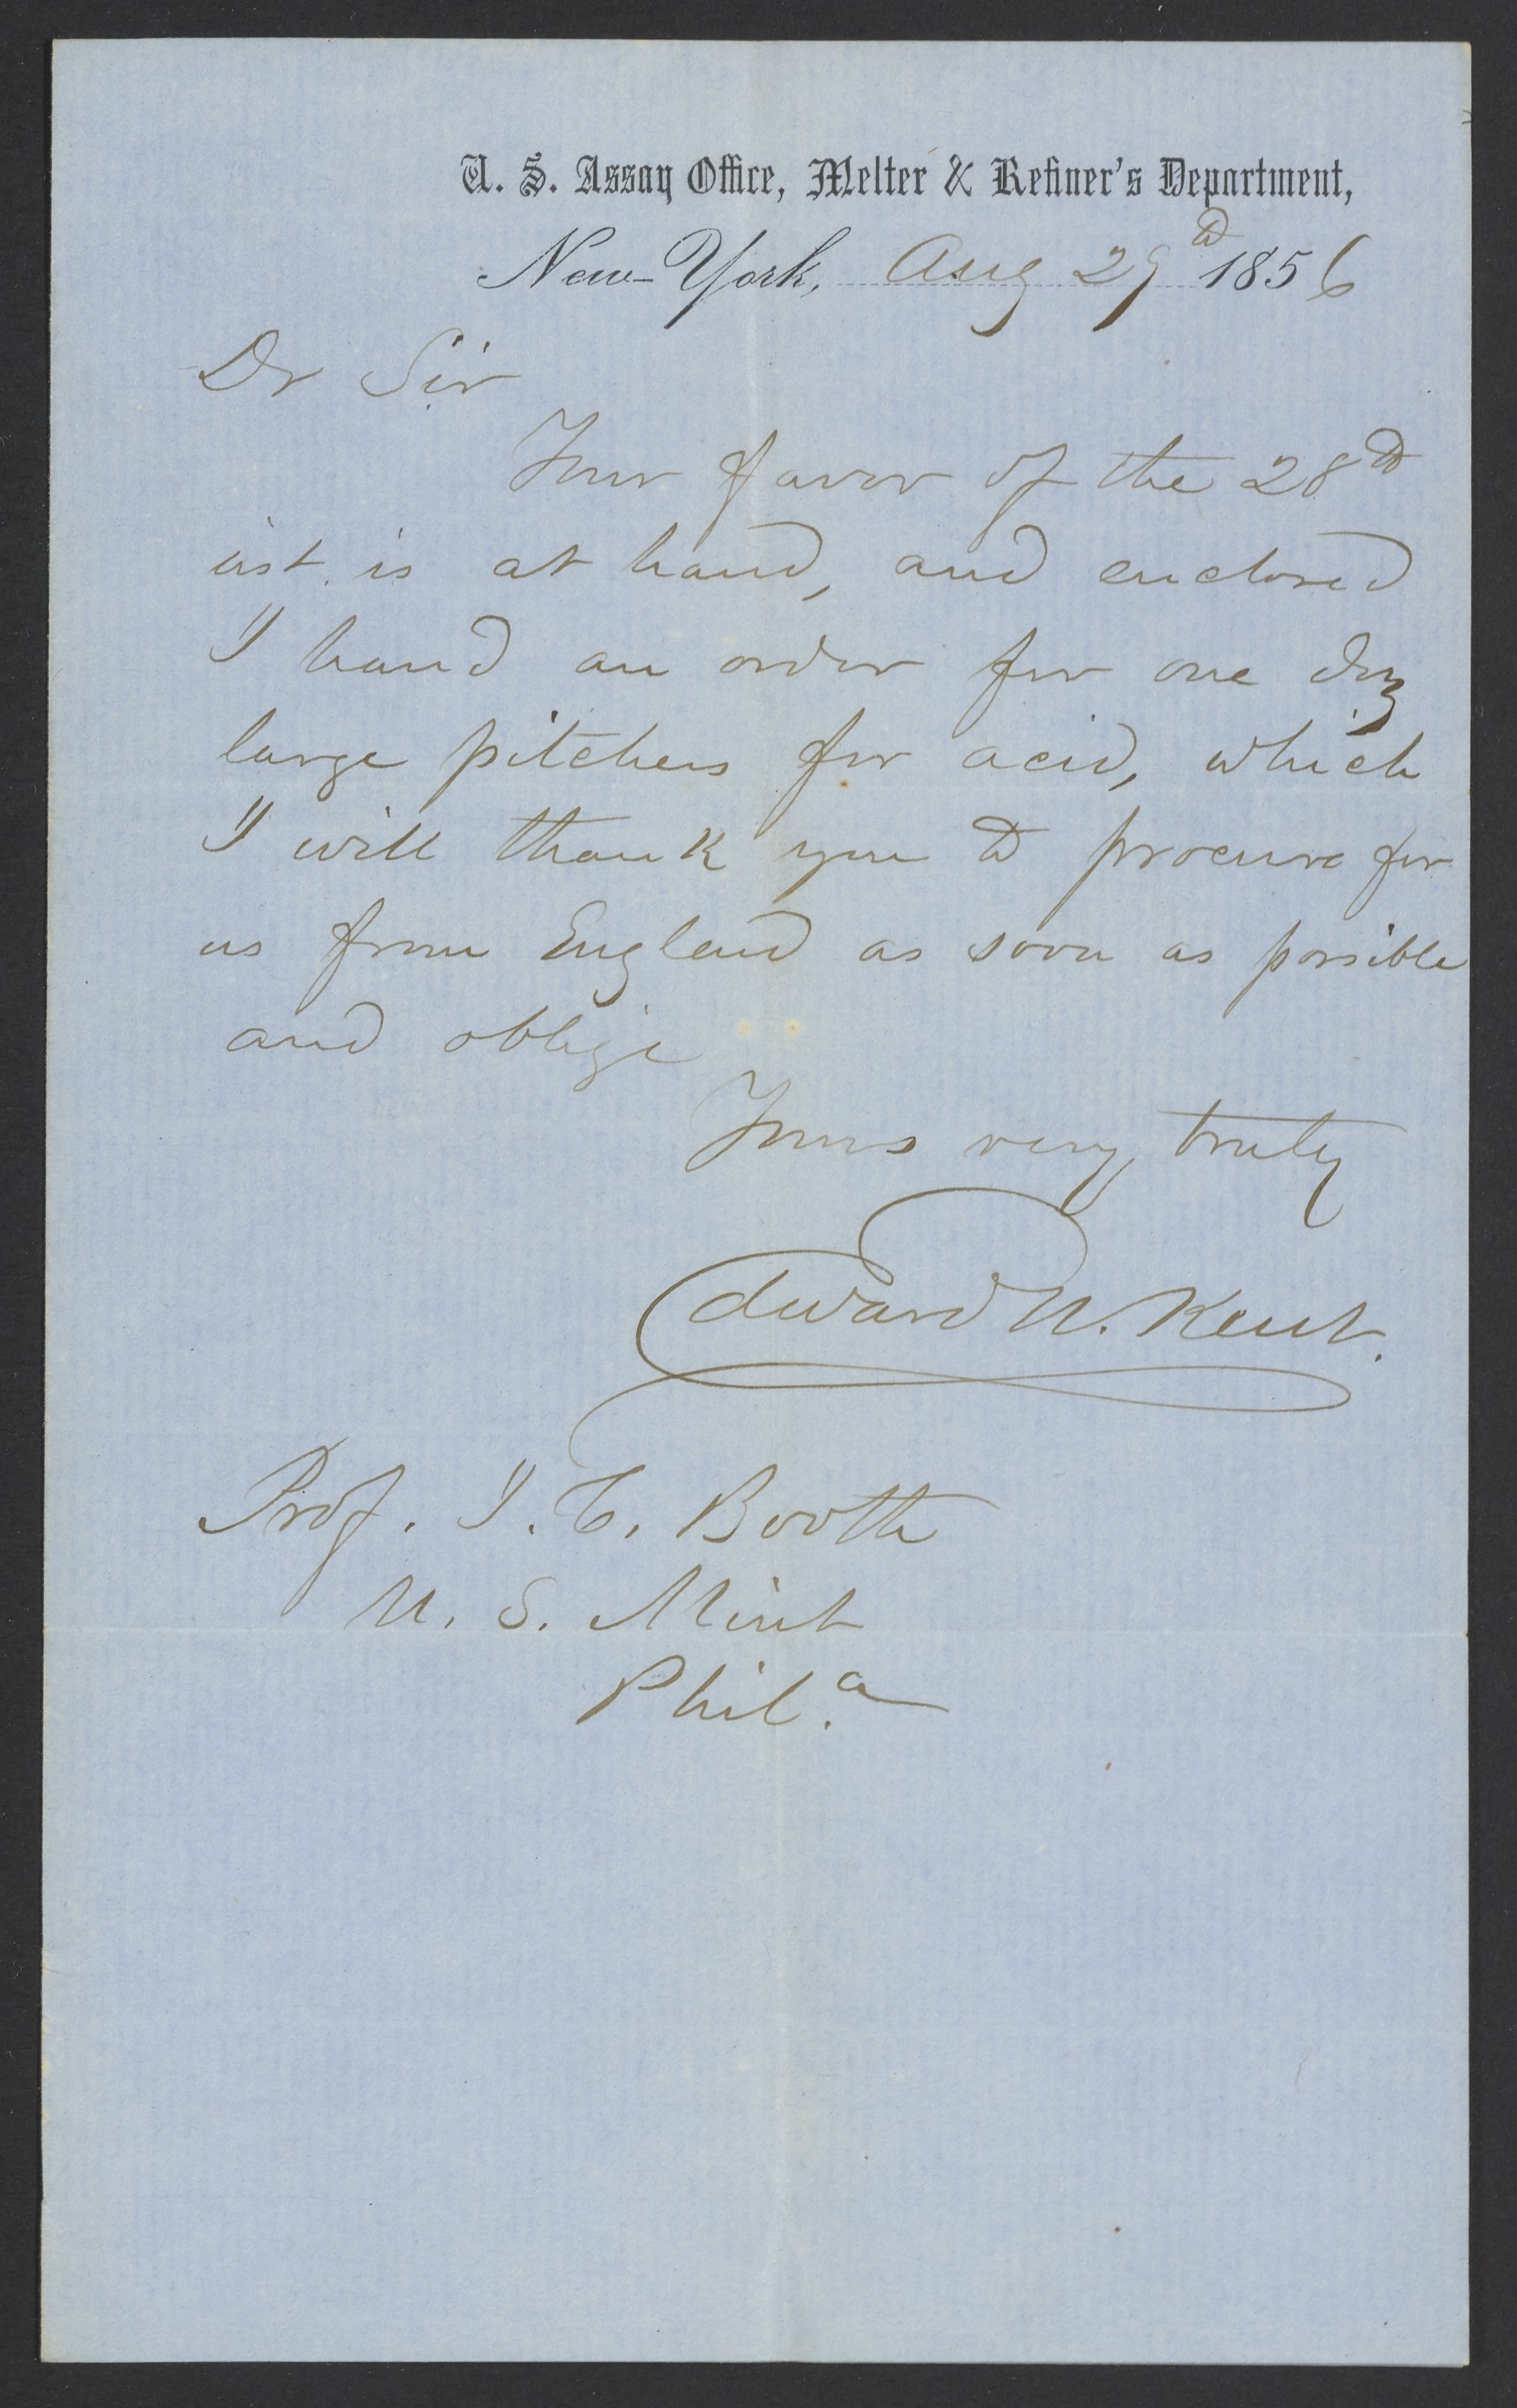 U. S. Assay Office, Melter & Refiner's Department,
New-York, Aug 29th 1856
Dr Sir
Your favor of the 28th
inst. is at hand, and enclosed
I hand an order for one doz
large pitchers for acid, which
I will thank you to procure for
us from England as soon as possible
and oblige
Yours very truly
Edward N. Kent.
Prof. J. C. Booth
U. S. Mint
Phil.a